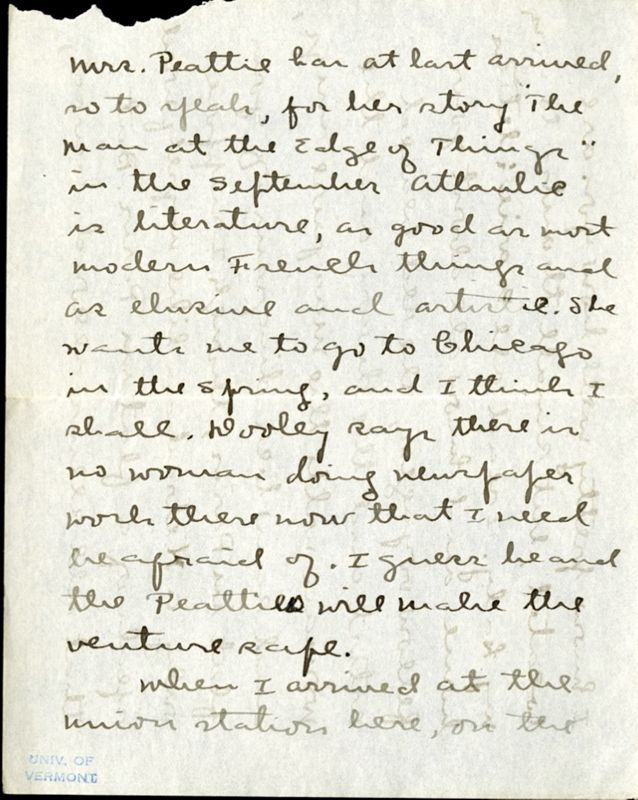 Mrs. Peattie has at last arrived,
so to speak, for her story "The
Man at the Edge of Things"
in the September Atlantic
is literature, as good as most
modern French things and
as elusive and artistic. She
wants me to go to Chicago
in the spring, and I think I
shall. Dooley says there is
no woman doing newspaper
work there now that I need
be afraid of. I guess he and
the Peatties will make the
venture safe.
When I arrived at the
union station here, on the
UNIV. OF
VERMONT